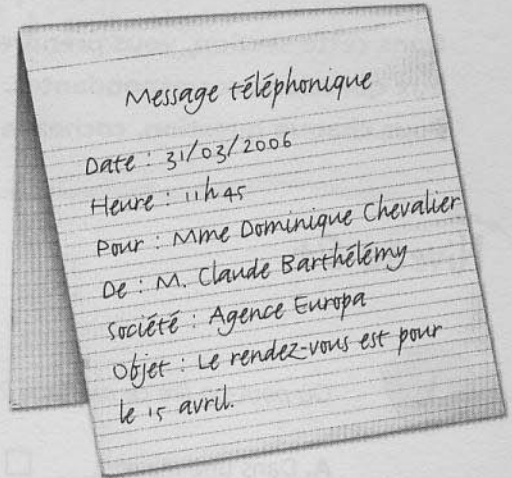 Message téléphonique
Date : 31/03/2006
Heure : 11h45
Pour : Mme Dominique Chevalier
De : M. Claude Barthélémy
Société : Agence Europa
Objet : Le rendez-vous est pour
le 15 avril.
A. Dans